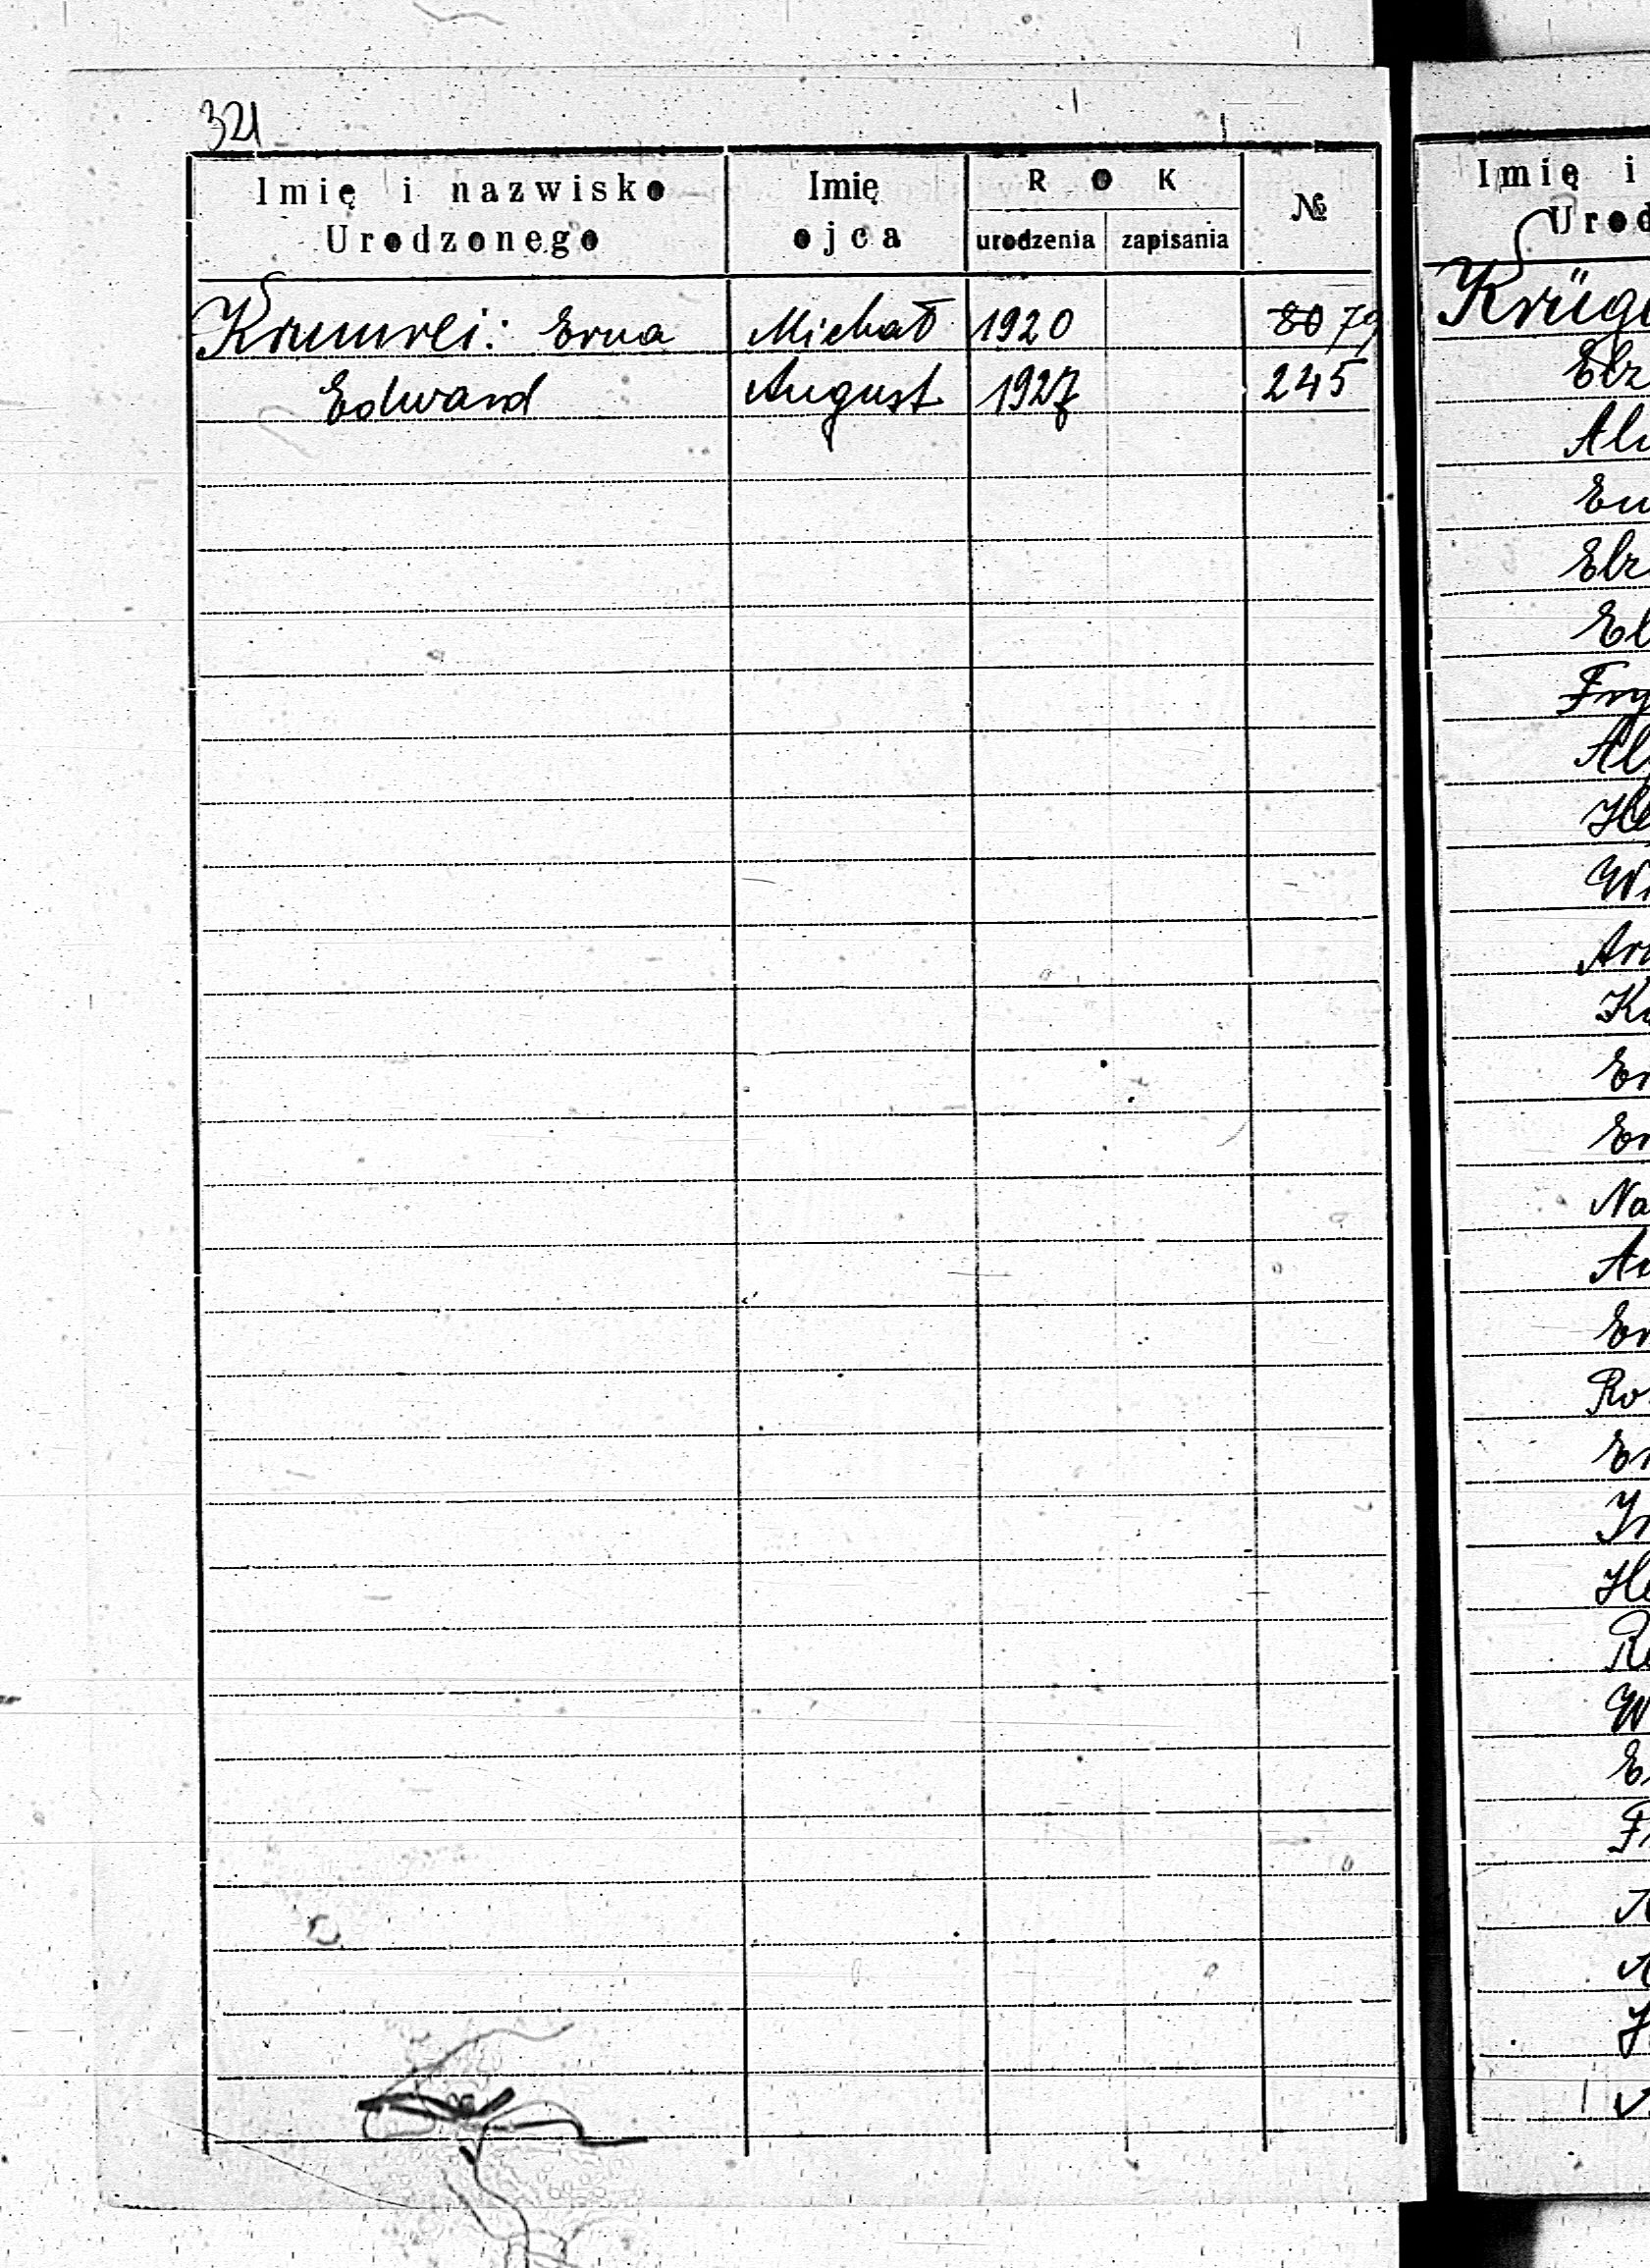 321
Imię i nazwisko Urodzonego
Imię ojca
ROK
urodzenia zapisania
№
Krumrei: Erna Michał 1920 80 79
Edward August 1927 245
Imię i
Urod
Krüge
Elz
Alu
Eu
Elz
El
Fry
Al
He
Wi
Ar
Ka
Er
Er
Na
Au
Er
Ro
Er
Ir
He
Re
W
E
Fr
A
A
J